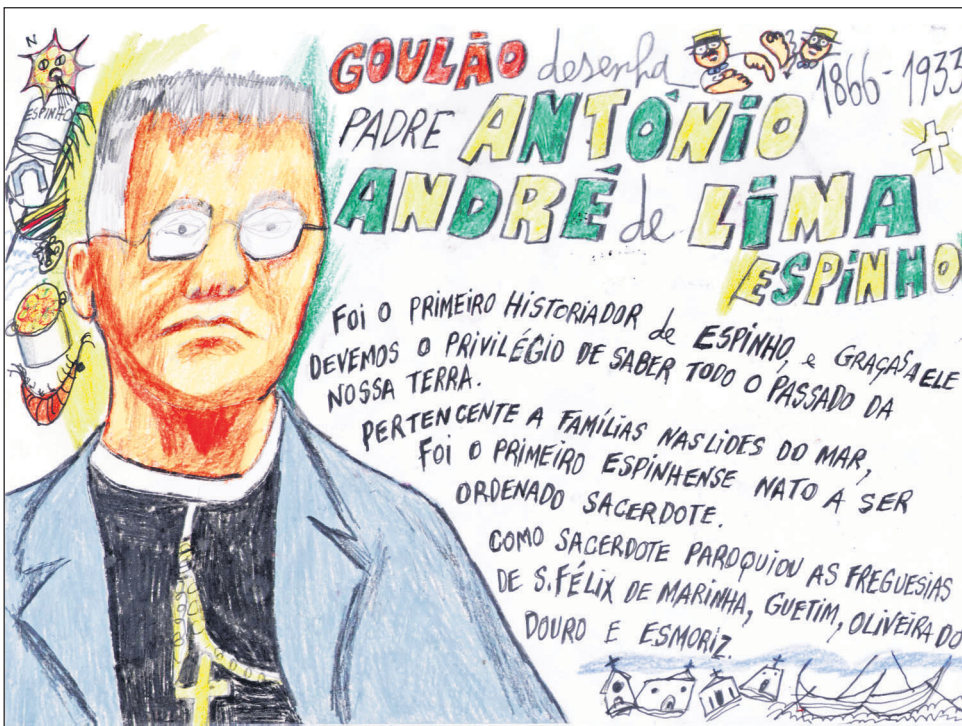 N
ESPINHO
GOULÃO desenha
1866-1933
PADRE ANTÓNIO
ANDRÉ de LIMA
ESPINHO
FOI O PRIMEIRO HISTORIADOR de ESPINHO, e GRAÇAS A ELE
DEVEMOS O PRIVILÉGIO DE SABER TODO O PASSADO DA
NOSSA TERRA.
PERTENCENTE A FAMÍLIAS NAS LIDES DO MAR,
FOI O PRIMEIRO ESPINHENSE NATO A SER
ORDENADO SACERDOTE.
COMO SACERDOTE PAROQUIOU AS FREGUESIAS
DE S. FÉLIX DE MARINHA, GUETIM, OLIVEIRA DO
DOURO E ESMORIZ.